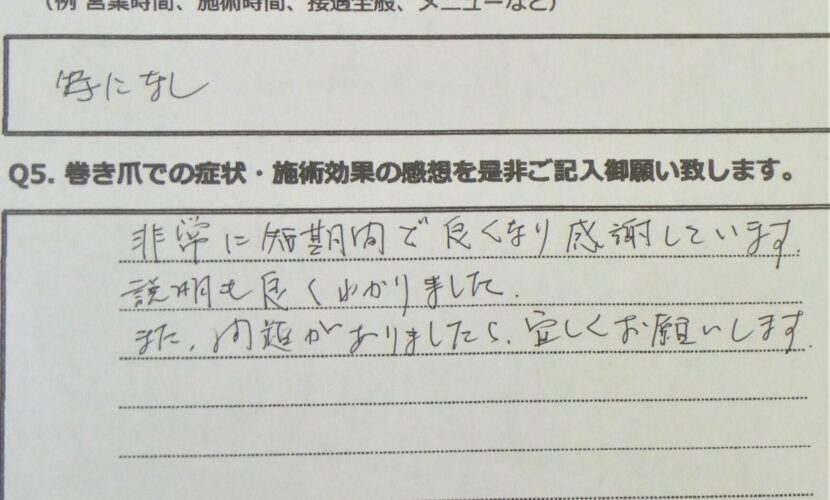 (例 営業時間、施術時間、接遇全般、メニューなど)
特になし
Q5. 巻き爪での症状・施術効果の感想を是非ご記入御願い致します。
非常に短期間で良くなり感謝しています.
説明も良くわかりました.
また、問題がありましたら、宜しくお願いします.